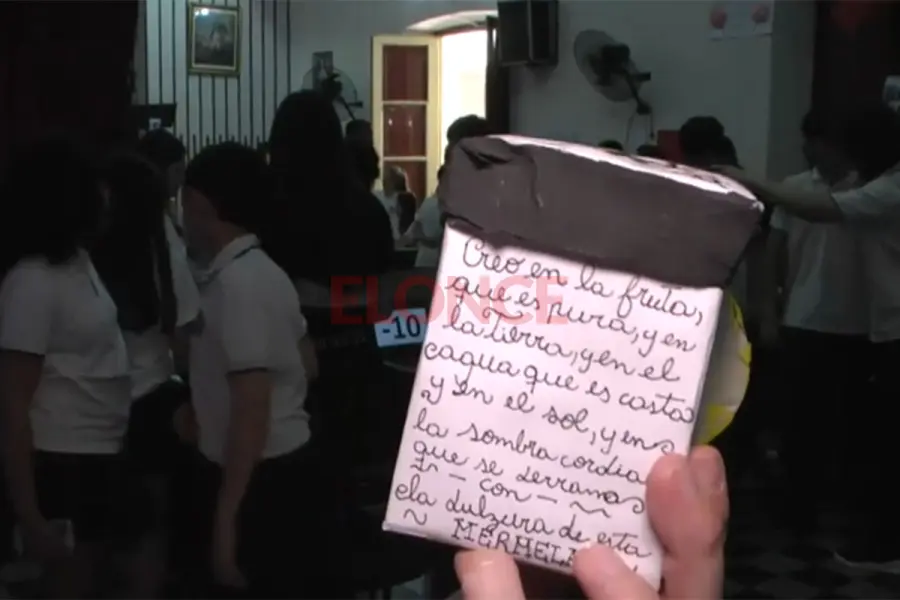 ELONCE
-10
Creo en la fruta,
que es pura, y en
la tierra, y en el
cagua que es casta
y en el sol, y en
la sombra cordia
que se derrama
con
ela dulzura de esta